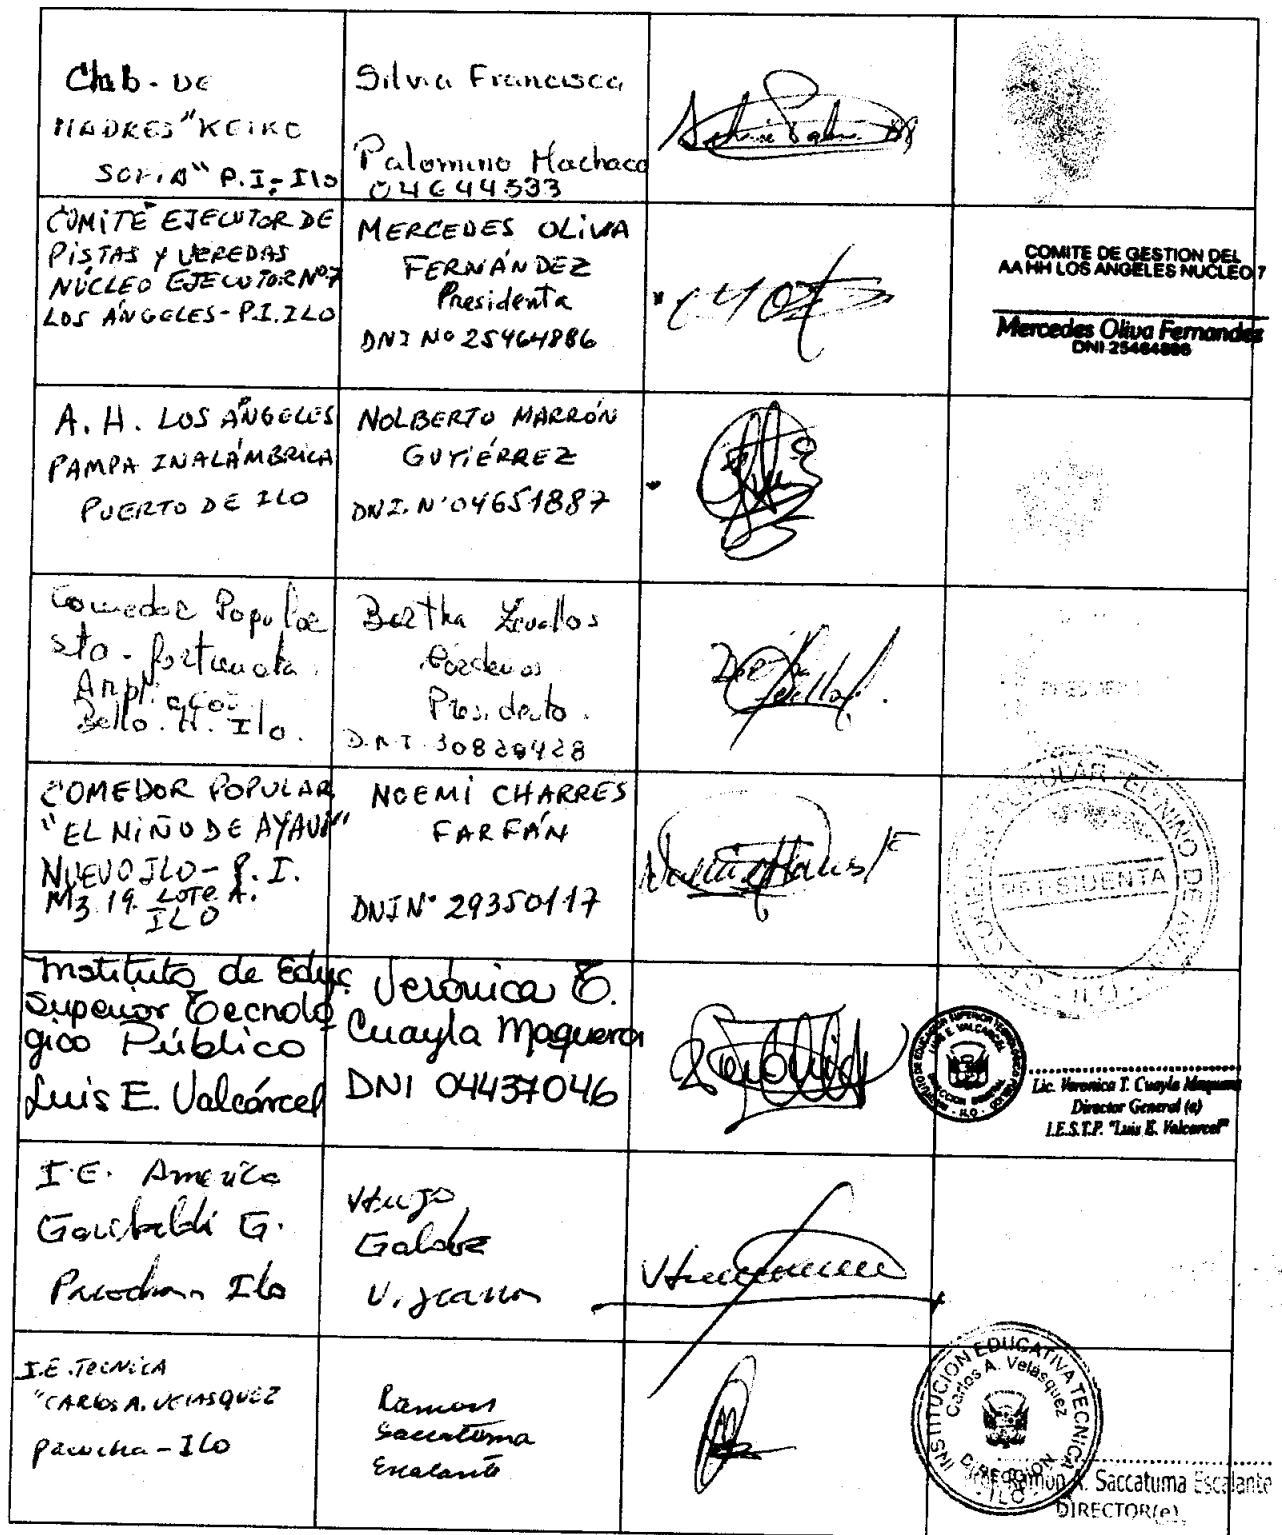 Club. DE
MADRES "KEIKO
SOFIA" P.I-Ilo
Silvia Francisca
Palomino Machaca
04644533
COMITÉ EJECUTOR DE
PISTAS Y VEREDAS
NÚCLEO EJECUTOR Nº7
LOS ÁNGELES-P.I.ILO
MERCEDES OLIVA
FERNÁNDEZ
Presidenta
DNI Nº 25464886
COMITE DE GESTION DEL
AA HH LOS ANGELES NUCLEO 7
Mercedes Oliva Fernandez
DNI 25464886
A. H. LOS ÁNGELES
PAMPA INALÁMBRICA
PUERTO DE ILO
NOLBERTO MARRÓN
GUTIÉRREZ
DNI. Nº 04651887
Comedor Popular
Sta. Fortunata
Ampliacó
Bello. H. Ilo.
Bertha Zevallos
Presidenta.
D.N.I. 30829428
COMEDOR POPULAR
"EL NIÑO DE AYAVI"
NUEVO ILO-P.I.
Mz 19. LOTE A.
ILO
NOEMÍ CHARRES
FARFÁN
DNI Nº 29350117
PRESIDENTA
Instituto de Educ.
Superior Tecnoló
gico Público
Luis E. Valcárcel
Verónica T.
Cuayla Maquera
DNI 04437046
Lic. Veronica T. Cuayla Maquera
Director General (e)
I.E.S.T.P. "Luis E. Valcarcel"
I.E. America
Garibaldi G.
Pacocha Ilo
Hugo
Galdos
Vizcarra
I.E. TECNICA
"CARLOS A. VELASQUEZ
pacocha-ILO
Ramon
Saccatuma
Escalante
INSTITUCION EDUCATIVA TECNICA
Carlos A. Velásquez
DIRECCION
- ILO -
Ramon A. Saccatuma Escalante
DIRECTOR(e)